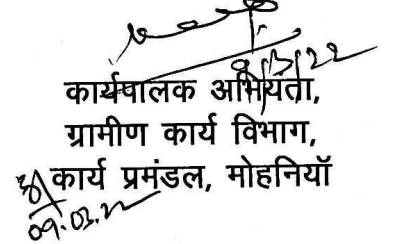 9/3/22
कार्यपालक अभियंता,
ग्रामीण कार्य विभाग,
कार्य प्रमंडल, मोहनियॉ
09.03.22